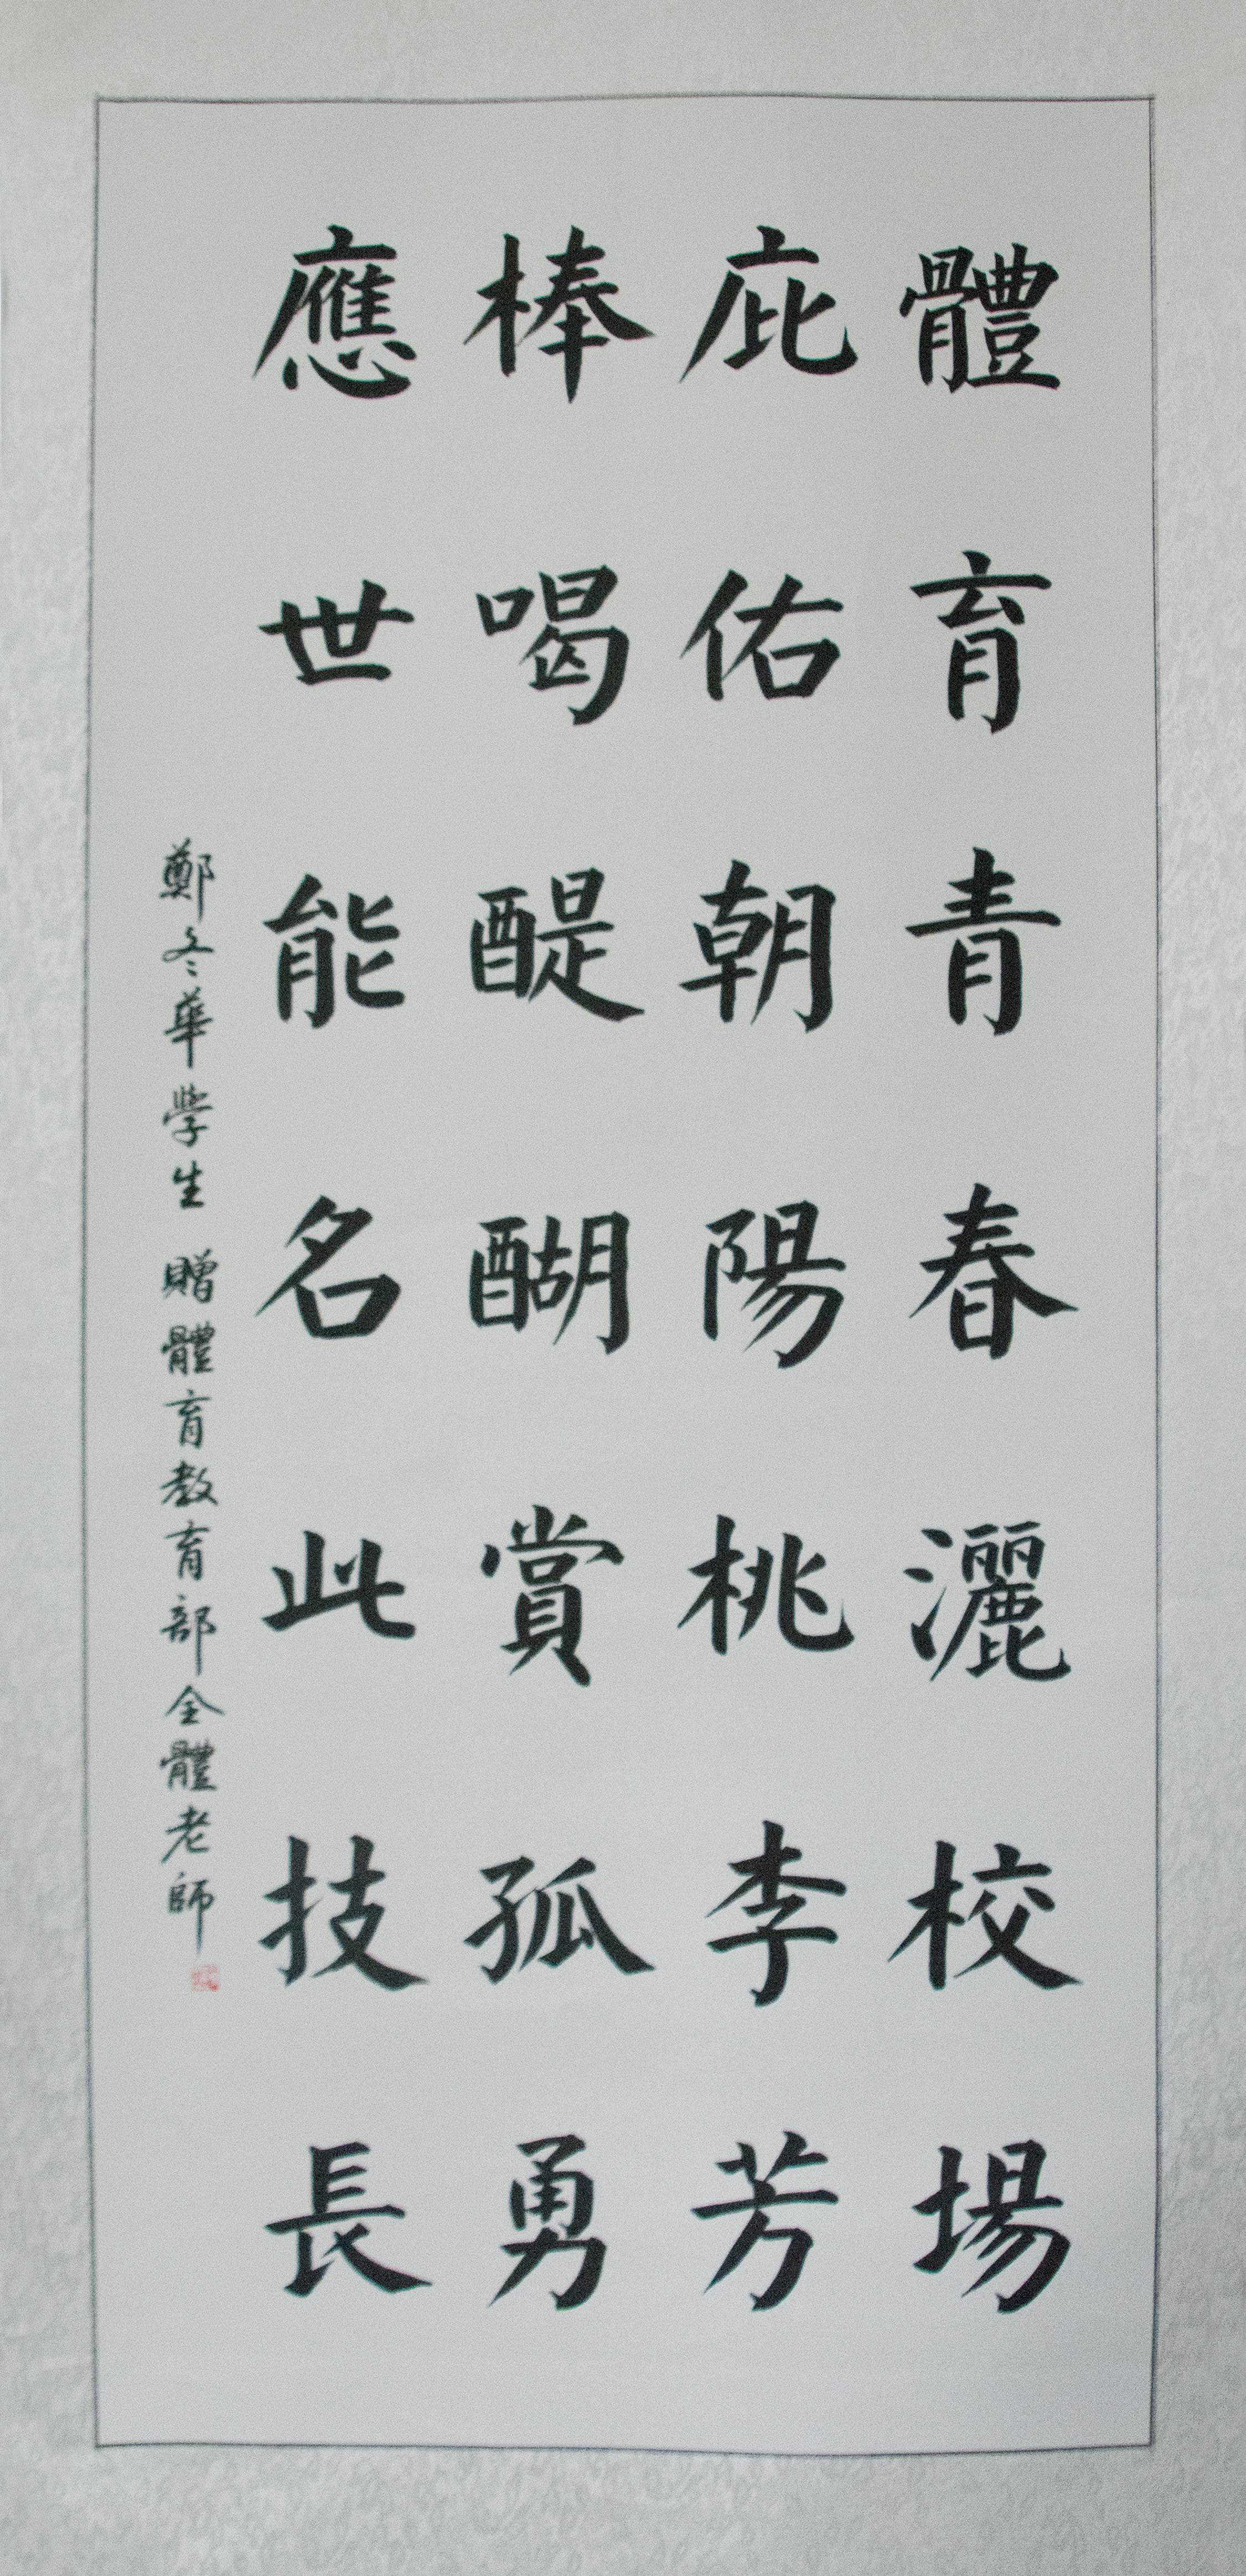 體育青春灑校場
庇佑朝陽桃李芳
棒喝醍醐賞孤勇
應世能名此技長
鄭冬華學生 贈體育教育部全體老師